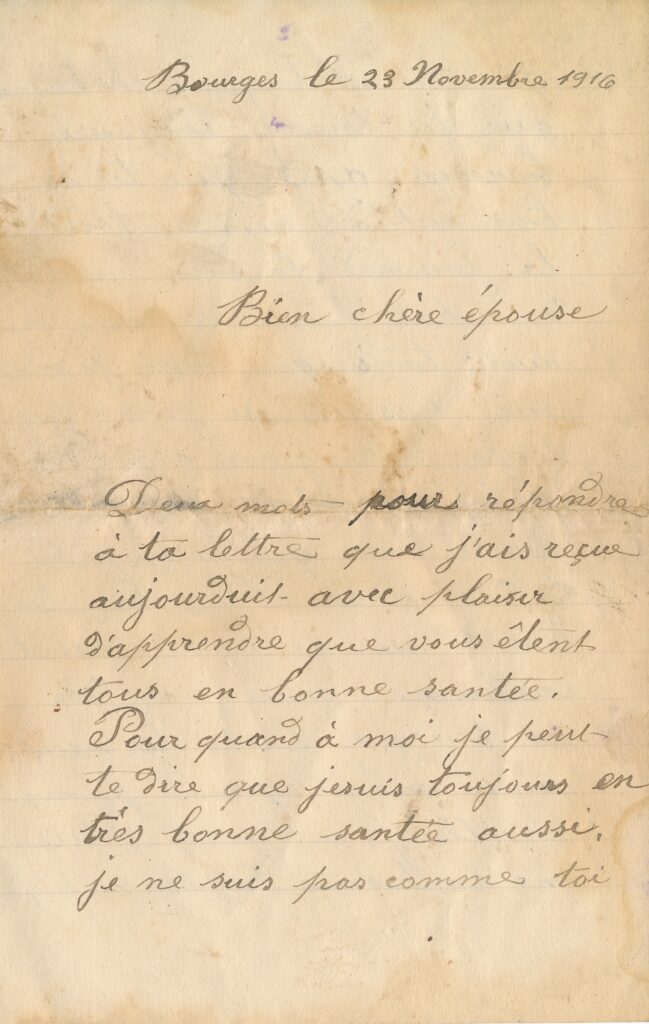 Bourges le 23 Novembre 1916
Bien chère épouse
Deux mots pour répondre
à ta lettre que j'ais reçue
aujourduit avec plaisir
d'apprendre que vous êtent
tous en bonne santée.
Pour quand à moi je peut
te dire que jesuis toujours en
très bonne santée aussi.
je ne suis pas comme toi